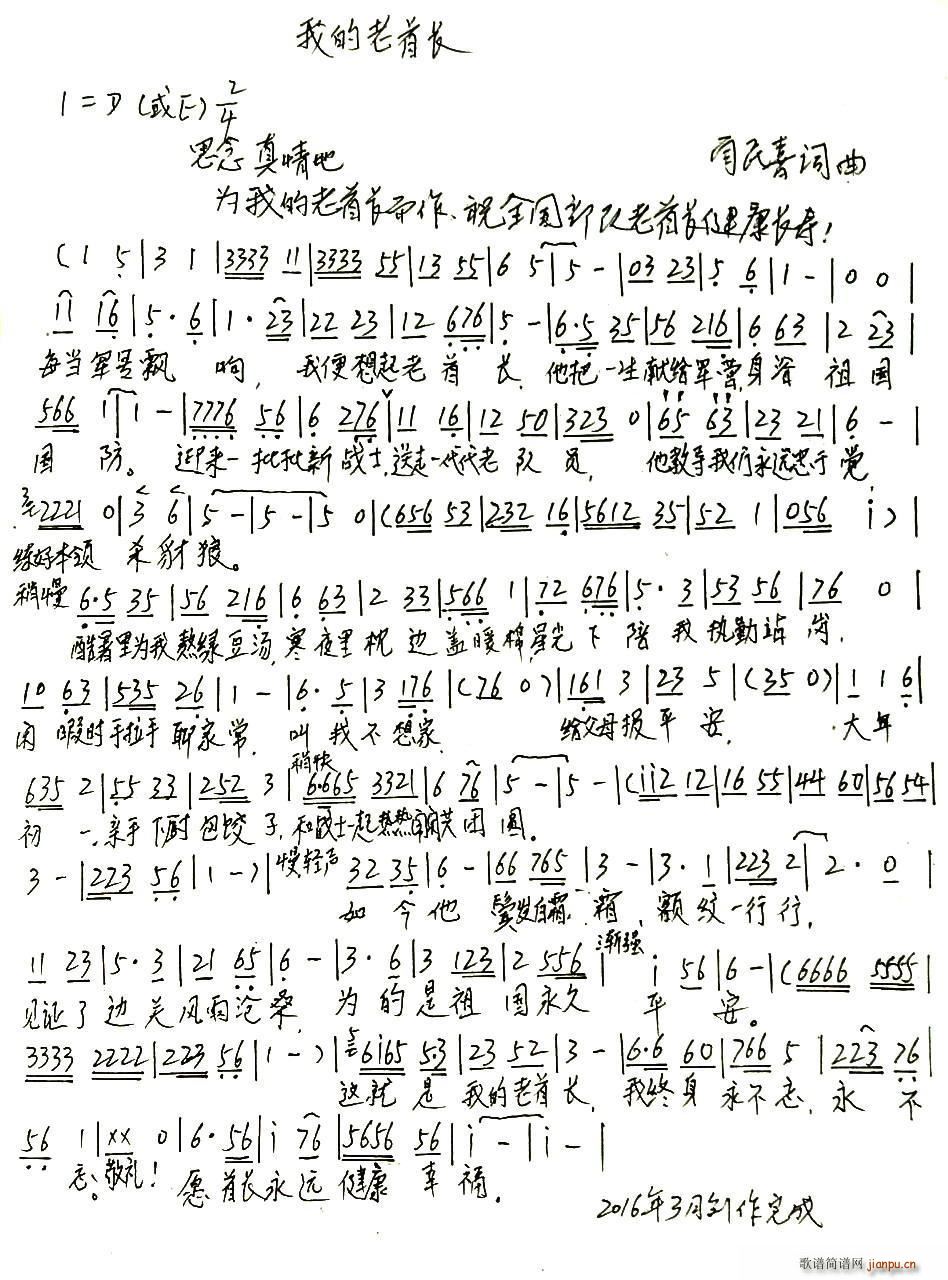 我的老首长
1=D (或E) 2/4
思念 真情地
词曲
为我的老首长而作、祝全国部队老首长健康长寿!
(1 5|3 1|3333 11|3333 55|13 55|6 5|5 -|03 23|5 6|1 -|0 0|
11 16|5· 6|1· 23|22 23|12 676|5 -|6·5 35|56 216|6 63|2 23|
每当军号飘响, 我便想起老首长, 他把一生献给军营身浴祖国
566 1|1 -|7776 56|6 276|11 16|12 50|323 0|65 63|23 21|6 -|
国防。迎来一批批新战士,送走一代代老队员, 他教导我们永远忠于党
2221 0|3 6|5 -|5 -|5 0|(656 53|232 16|5612 35|52 1|056 i)|
练好本领 杀豺狼。
稍慢 6·5 35|56 216|6 63|2 33|566 1|72 676|5· 3|53 56|76 0|
酷暑里为我熬绿豆汤,寒夜里枕边盖暖棉,星光下陪我执勤站岗,
10 63|535 26|1 -|6· 5|3 176|(76 0)|161 3|23 5|(35 0)|1 1 6|
闲暇时手拉手聊家常, 叫我不想家, 给父母报平安, 大年
635 2|55 33|252 3|稍快 6·665 3321|6 76|5 -|5 -|(ii2 12|16 55|44 60|56 54|
初一,亲手下厨包饺子,和战士一起热热闹闹共团圆。
3 -|223 56|1 -)|慢轻声 32 35|6 -|66 765|3 -|3· 1|223 2|2· 0|
如今他 鬓发白霜霜,额纹一行行,
11 23|5· 3|21 65|6 -|3· 6|3 123|2 556|渐强 i 56|6 -|(6666 5555|
见证了边关风雨沧桑,为的是祖国永久平安。
3333 2222|223 56|1 -)|5 6i65 5·3|23 52|3 -|6·6 60|766 5|223 76|
这就是我的老首长,我终身永不忘,永不
56 1|xx 0|6· 56|i 76|5656 56|i -|i -|
忘。敬礼!愿首长永远健康幸福。
2016年3月创作完成
歌谱简谱网
jianpu.cn